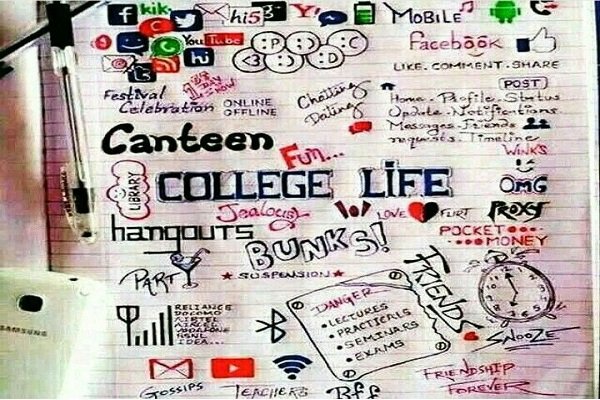 kik
hi5
Y!
MOBILE
facebook
YouTube
hi
:P :) :C
<3 :) :D
LIKE. COMMENT. SHARE
POST
Festival
Celebration
ONLINE
OFFLINE
Chatting
Dating
Home. Profile. Status
Update. Notifications.
Messages. Friends
requests. Timeline
WINKS
Canteen
Fun...
LIBRARY
COLLEGE LIFE
OMG
Jealousy
LOVE
FLIRT
PROXY
hangouts
BUNKS!
POCKET
MONEY
PARTY
SUSPENSION
FRIENDS
SAMSUNG
RELIANCE
DOCOMO
AIRTEL
AIRCEL
VODAFONE
BSNL
IDEA...
DANGER
LECTURES
PRACTICALS
SEMINARS
EXAMS
SNOOZE
GOSSIPS
TEACHERS
Bff
FRIENDSHIP
FOREVER